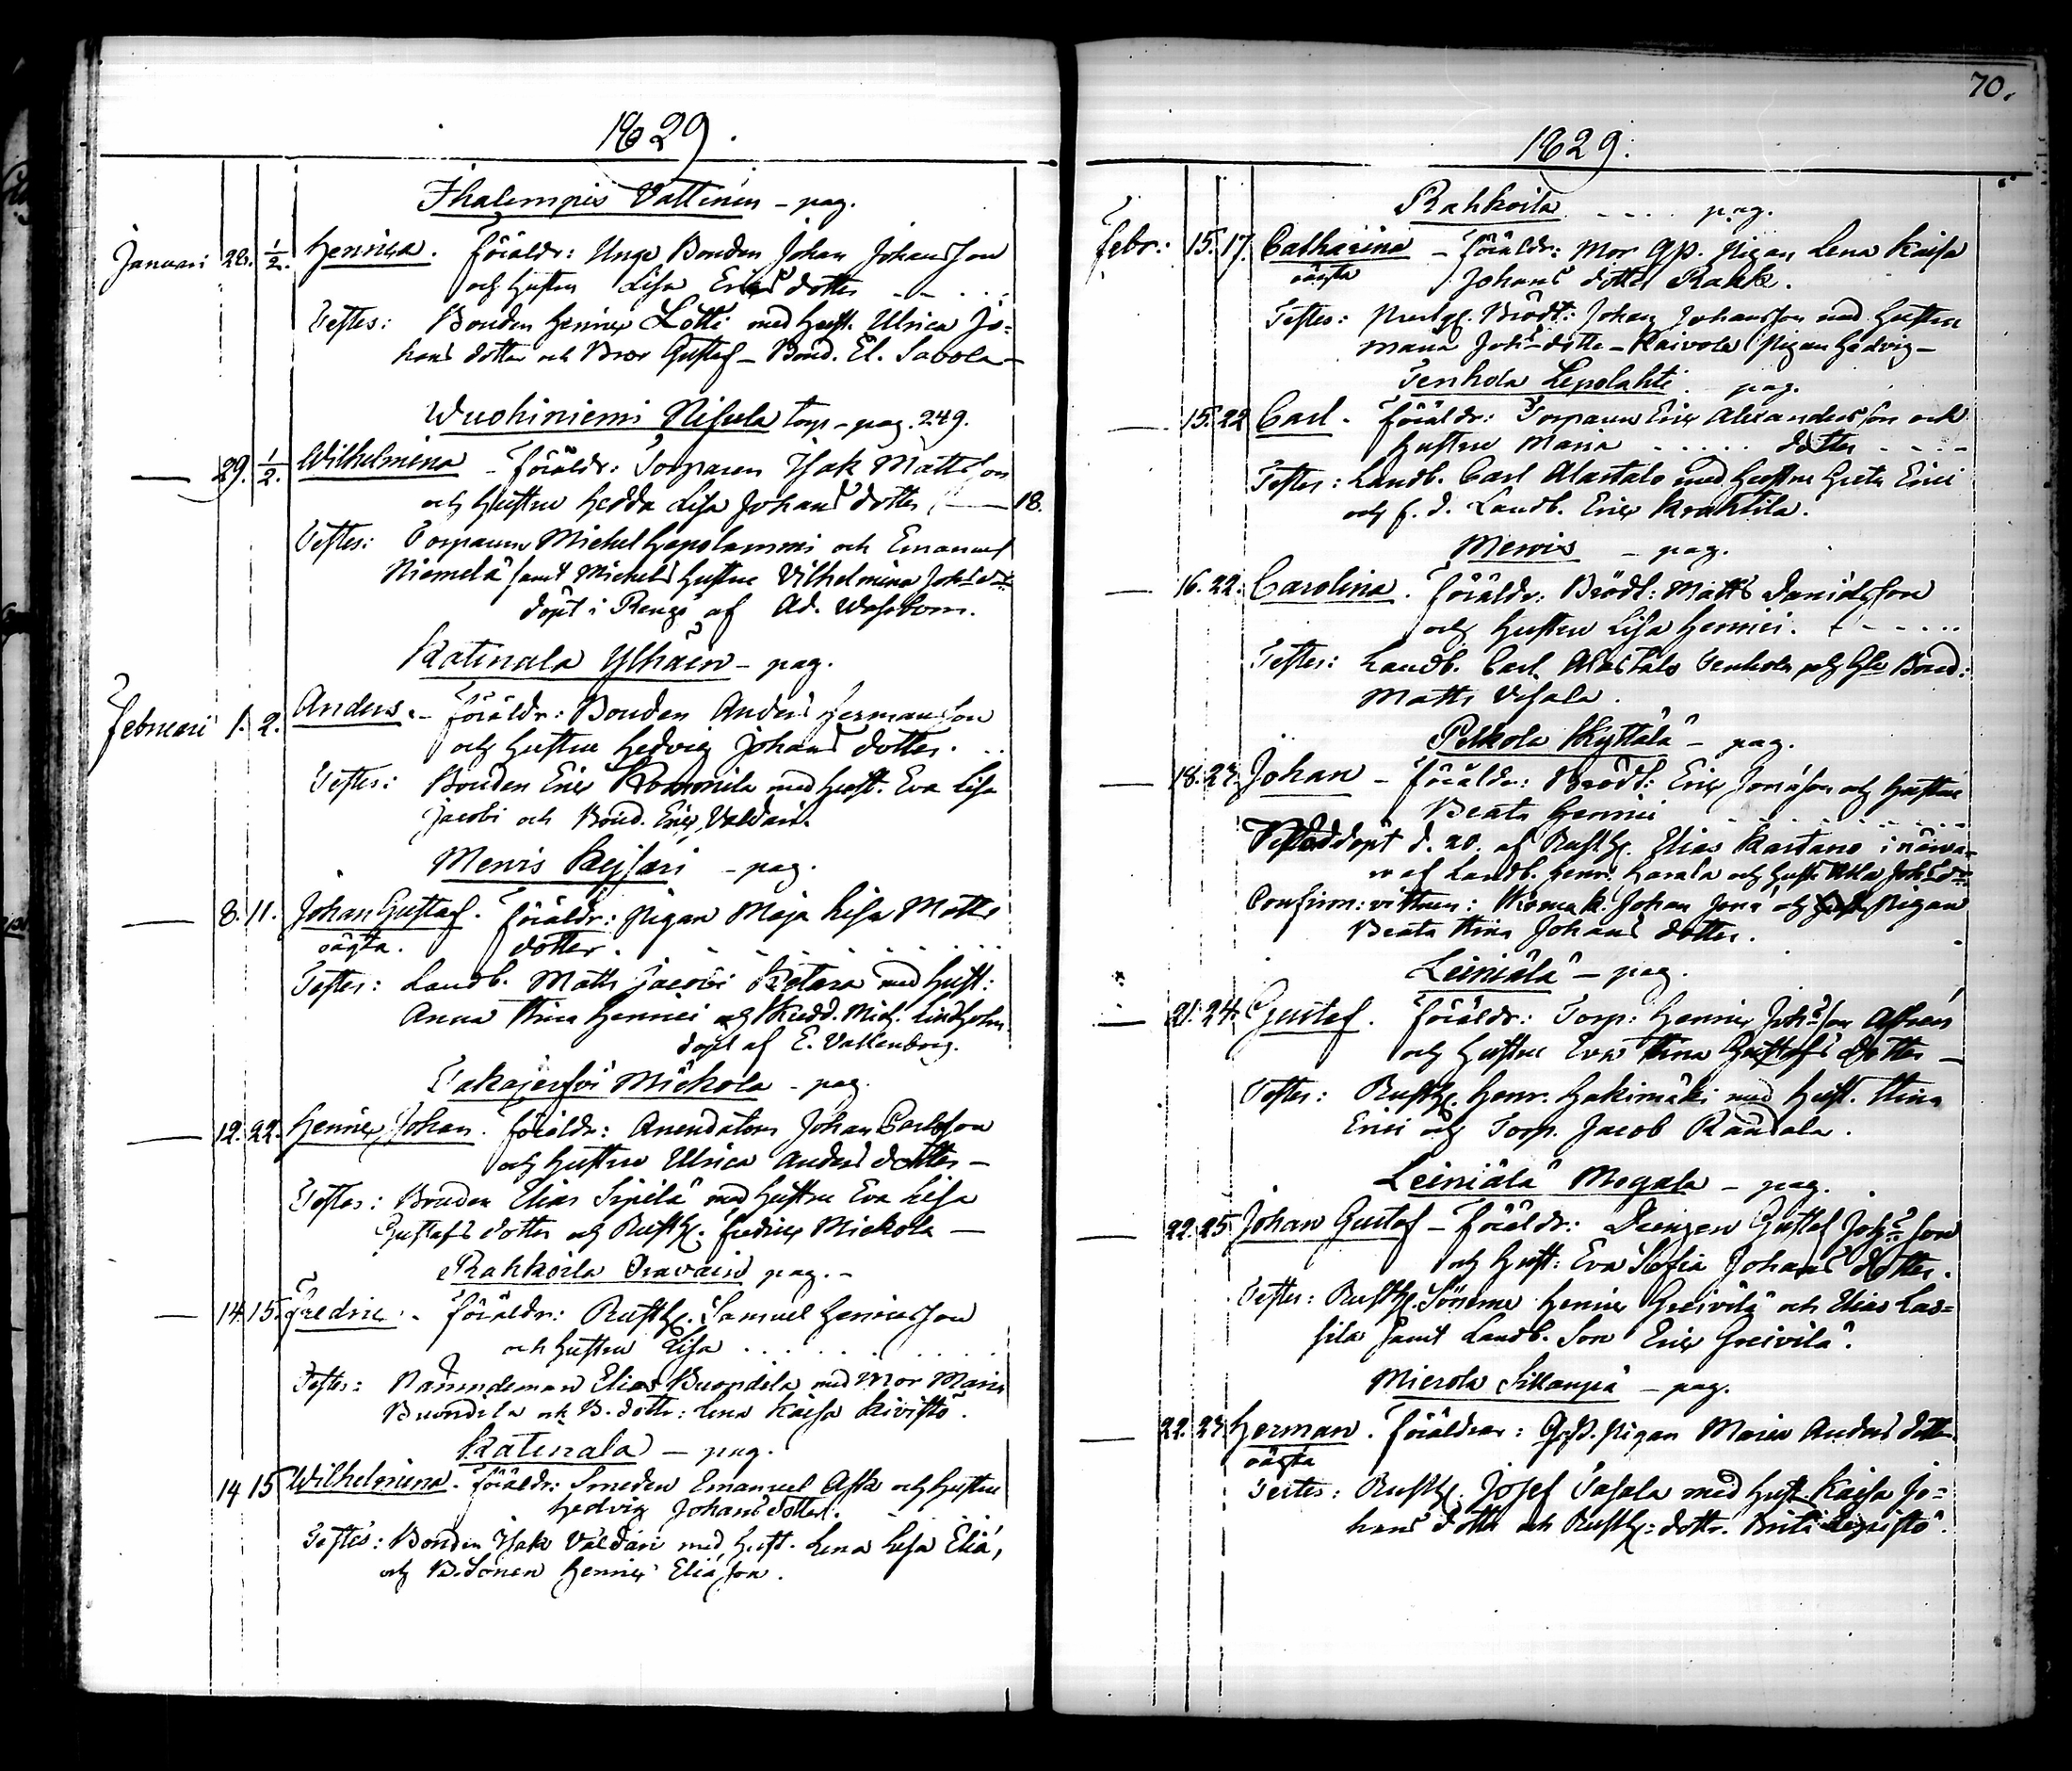 1829.
Ihalempis Vattinen - pag.
Januari 22. 1/2. Henrica. Föräldr: Unge Bonden Johan Johansson
och Hustru Lisa Ericsdotter
Testes: Bonden Henric Lotti med Hust. Ulrica Jo-
hansdotter och Bror Gustaf - Bond. El. Savola -
Wuohiniemi Nisula torp - pag. 249.
29. 1/2. Wilhelmina - Föräldr: Torparen Isak Mattsson
och Hustru Hedda Lisa Johansdotter 18.
Testes: Torparen Michel Hapolammi och Emanuel
Niemelä samt Michels Hustru Vilhelmina Johsdr
döpt i Rengo af Ad.
Katinala Ylhäin - pag.
Februari 1. 2. Anders. - Föräldr: Bonden Anders Hermansson
och Hustru Hedvig Johansdotter.
Testes: Bonden Eric med Hust. Eva Lisa
Jacobi och Bond. Eric Valdari.
Mervis Keisari - pag.
8. 11. Johan Gustaf. Föräldr: Pigan Maja Lisa Matts
oägta. dotter.
Testes: Landb. Matts Jacobi Ketara med Hust:
Anna Stina Henrici och Mich. Lindholm.
döpt af E. Vallenborg.
Takajersvi Mickola - pag.
12. 22. Henric Johan. Föräldr: Arendatorn Johan Carlsson
och Hustru Ulrica Andersdotter -
Testes: Bonden Elias Sipilä med Hustru Eva Lisa
Gustafsdotter och Rusth. Fredric Mickola -
Rahkoila Oravais pag. -
14. 15. Fredric. - Föräldr: Rusth. Samuel Henricsson
och Hustru Lisa
Testes: Nämndeman Elias Buondila med Mor Maria
Buondila och B. dottr: Lena Kaisa Kivistö.
Katinala - pag.
14 15 Wilhelmina. Föräldr: Smeden Emanuel Ask och Hustru
Hedvig Johansdotter.
Testes: Bonden Isak Valdari med Hust. Lena Lisa Eliæ,
och B. Sonen Henric Eliæson.
70.
1829.
Rahkoila pag.
Febr: 15. 17. Catharina - Föräldr: Mor Gp. Pigan Lena Kaisa
oägta Johansdotter Raukk.
Testes: Brodr: Johan Johansson med Hustru
Maria Johs-dotter - Kaivola Pigan Hedvig -
Tenhola Lepolahti. pag.
15. 22 Carl. Föräldr: Torparen Eric Alexandersson och
Hustru Maria dotter
Testes: Landb. Carl Alastalo med Hustru Greta Erici
och f. d. Landb. Eric Krahtila.
Mervis - pag.
16. 22. Carolina. Föräldr: Brodr: Matts Danielsson
och Hustru Lisa Henrici.
Testes: Landb. Carl Alastalo Tenhola och Gle Bond:
Matts Vesala.
Pelkola Kyttälä - pag.
18. 23. Johan - Föräldr: Brodr: Eric Jonæson och Hustru
Beata Henrici
döpt d. 20. af Rusth. Elias i närva-
ro af Landb. Henr. Harala och Hust. Ulla Johsdr
Confirm: vittnen: Johan Jonæ och Pigan
Beata Stina Johansdotter.
Leiniälä - pag.
21. 24. Gustaf. Föräldr: Torp: Henric Johsson Alfren
och Hustru Eva Stina Gustafsdotter -
Testes: Rusth. Henr. Hakimäki med Hust. Stina
Erici och Torp. Jacob Randala.
Leiniälä Mogala - pag.
22. 25. Johan Gustaf - Föräldr: Drengen Gustaf Johsson
och Hust: Eva Sofia Johansdotter.
Testes: Rusth. Sönerne Henric Greivilä och Elias Las-
sila samt Landb. Son Eric Greivilä.
Mierola Sillanpä - pag.
22. 23. Herman. Föräldrar: Gpd. Pigan Maria Andersdotter
oägta
Testes: Rusth. Josef Tasala med Hust. Kaisa Jo-
hansdotter och Rusth: dottr. Brita Lepistö.